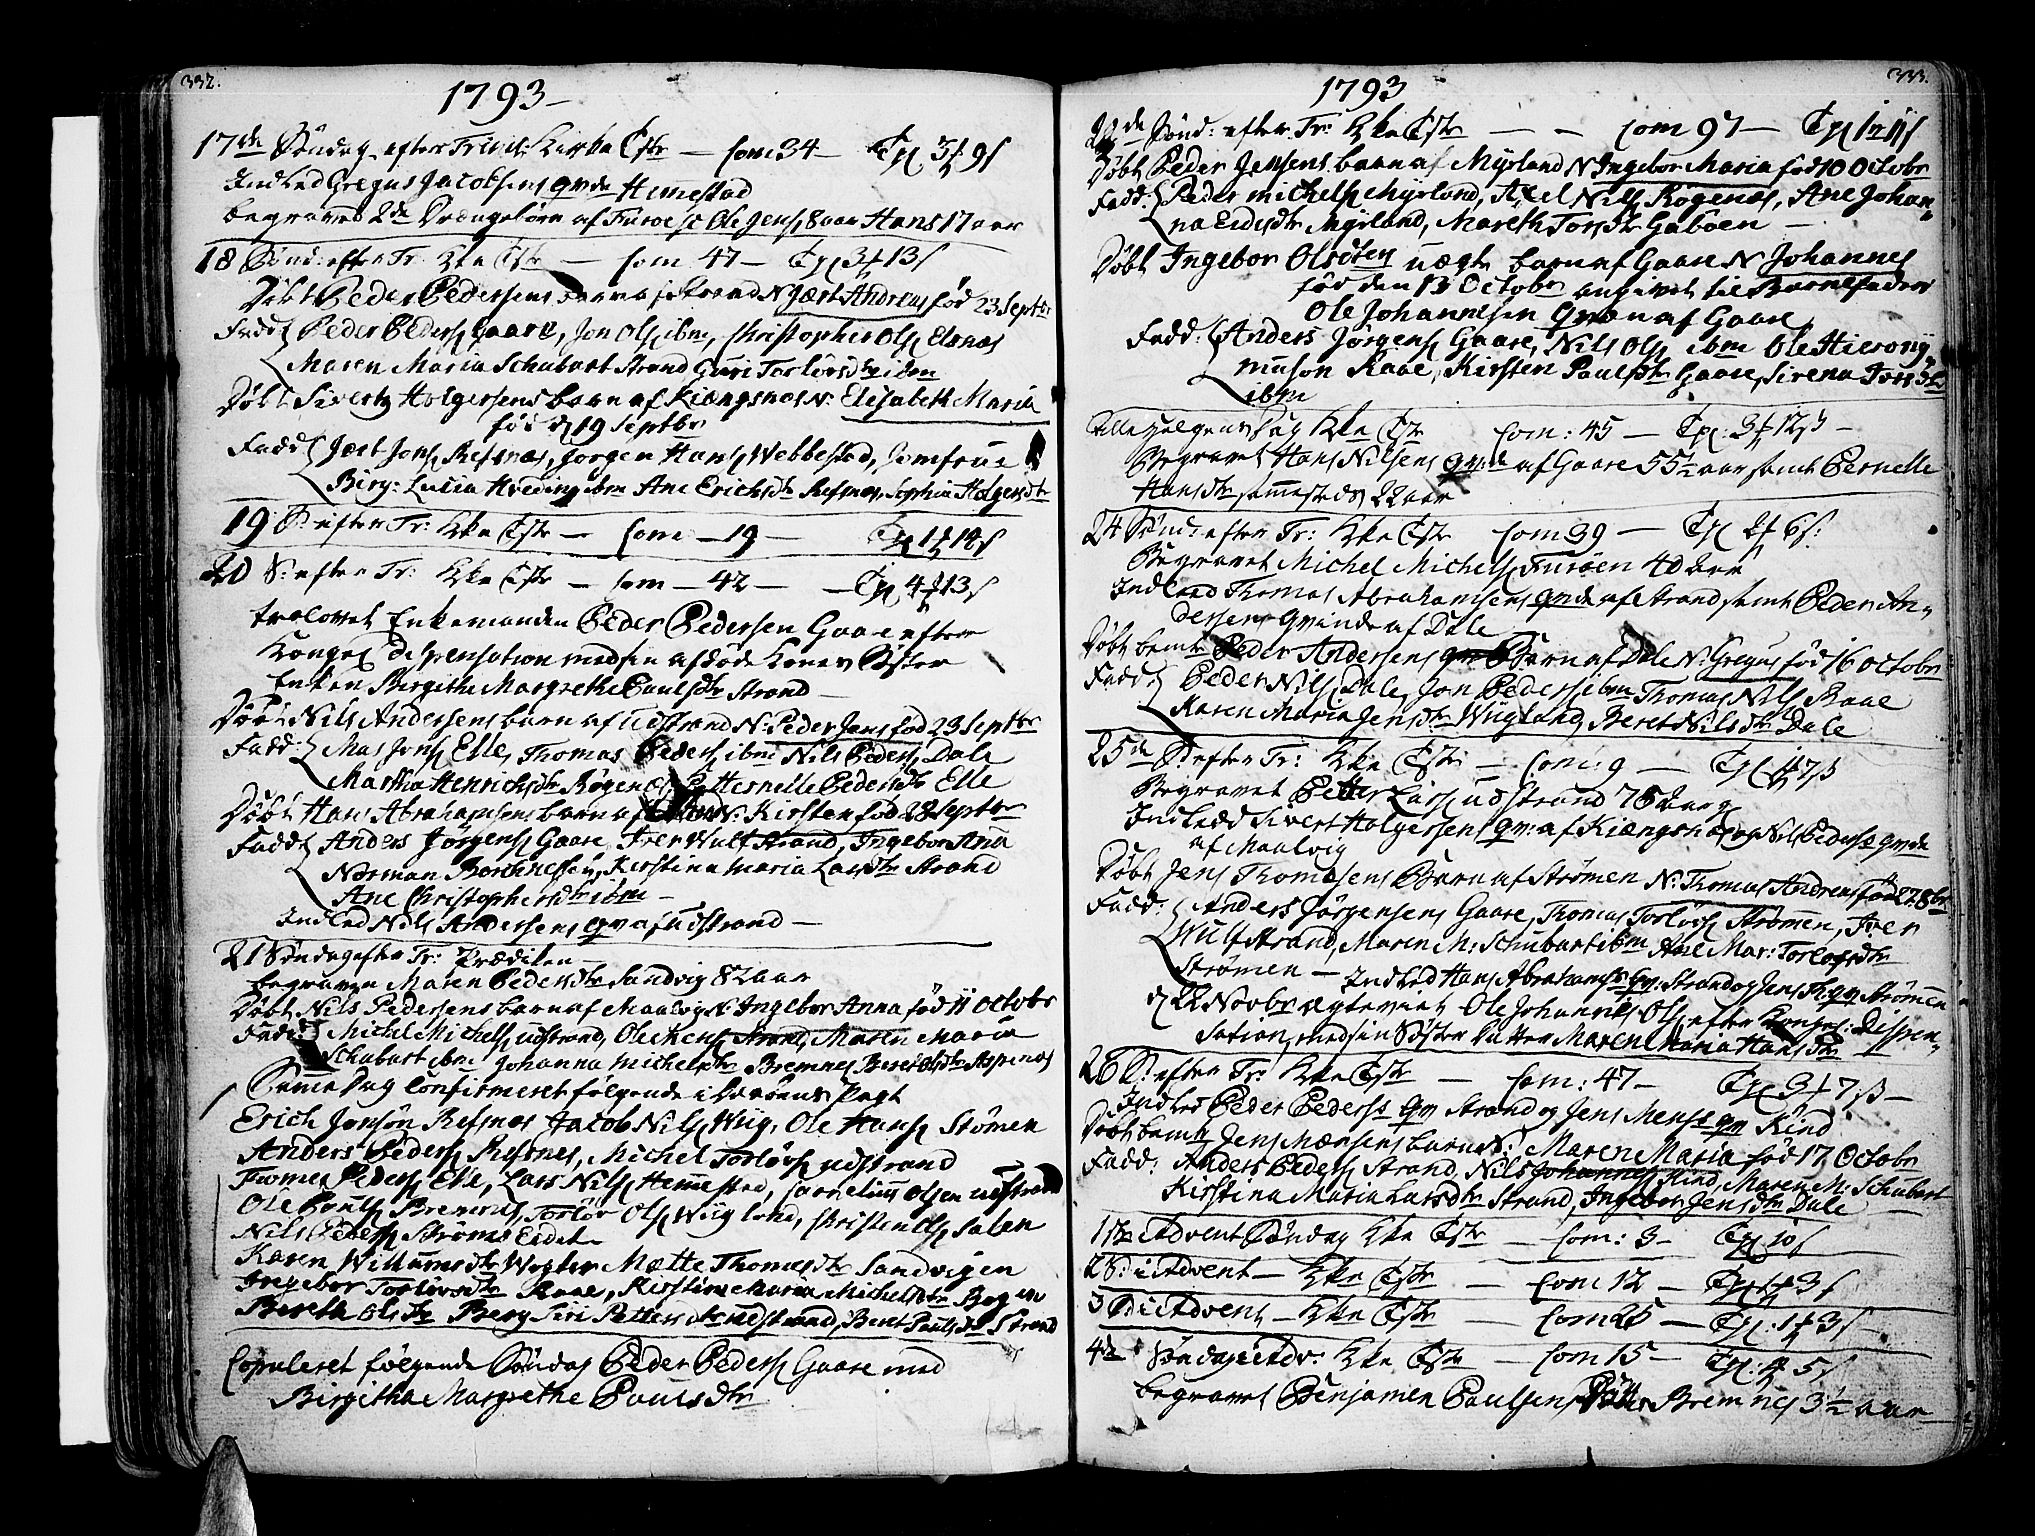 332.
1793
17de Søndag efter Trinit: Kirke Tstr — Com 34 — Tfl 3 9s
Indled Gregus Jacobsens qvde Hemestad
begravet 2de Drængebørn af Furöe Ole Jens 8 aar Hans 17 aar
18 Sönd: efter Tr: Kke Tstr — Com 47 — Tfl 3 13s
Döbt Peder Pedersens barn Strand N Jært Andreas fød 23 Septbr
Fadd Peder Peders Gaare, Jon Ols ibm, Christopher Ols Elsnæs
Maren Maria Schubart Strand Guri Torlövsdtr ibm
Döbt Sivertz Holgersens barn af Kiængsnæs N: Elisabeth Maria
föd d 19 Septbr
Fadd Jært Jons Refsnæs, Jorgen Hans Webbestad, Jomfrue
Birg: Lucia Hveding ibm Ane Erichsdtr Refsnes, Sophia Holgersdtr
19 S: efter Tr: Kke Tstr — Com — 19 — Tfl 1 14s
20 S: efter Tr: Kke Tstr — Com — 42 — Tfl 4 13s
trolovet Enkemanden Peder Pedersen Gaare efter
Kongel dispensation med sin afdöde Kones Söster
Enken Birgithe Margrethe Paulsdtr Strand —
Döbt Nils Andersens barn af Udstrand N: Peder Jens fød 23 Septbr
Fadd: Mas Jons Elle, Thomas Peders ibm Nils Peders Dale
Martha Henrichsdtr Røgenæs Pernelle Pedersdtr Elle
Döbt Hans Abrahamsens barn af N: Kirsten fød 28 Septbr
Fadd Anders Jörgens Gaare Iver Wulf Strand, Ingebor Ana
Norman Borchnessen, Kirstina Maria Larsdtr Strand
Ane Christophersdtr ibm —
Indled Nils Andersens qv af udstrand —
21 Söndag efter Tr: Prædiken —
begraven Maren Pedersdtr Sandvig 82 aar
Döbt Nils Pedersens barn af Maalvig N Ingebor Anna fød 11 Octobr
Fadd: Michel Michels udstrand, Ole Kens Strand, Maren Maria
Schubart ibm Johanna Michelsdtr Bremnes Beret Olsdtr Aspenæs
Same Dag Confirmeret følgende i Qvæøens Pagt
Erich Jonsön Refsnæs Jacob Nils Wiig, Ole Hans Strömen
Anders Peders Refsnes, Michel Torlövs udstrand
Thomes Peders Elle, Lars Nils Hemmestad, Cornelius Olsen udstrand
Ole Pouls Bremnes, Torlör Ols Wiigland, Christen Ols Salen
Nils Peders Ströms Eidet
Karen Willumsdtr Mætte Thomesdtr Sandvigen
Ingebor Torlövsdtr Raae, Kirstine Maria Michelsdtr Bogen
Bereth Olsdtr Berg Siri Pettersdtr udstrand, Beret Poulsdtr Strand
Copuleret følgende Søndag Peder Peders Gaare med
Birgitha Margrethe Paulsdtr
333.
1793
22de Sönd: efter Tr: Kke Tstr — — Com 97 — Tfl 12 11s
Döbt Peder Jensens barn af Myrland N Ingebor Maria fød 10 Octobr
Fadd: Peder Michels Myrland, Axel Nils Røgenæs, Ane Johan-
na Eidisdtr Myrland, Mareth Torsdtr Gaboen —
Döbt Ingebor Olsdten uægt barn af Gaare N Johannes
fød den 13 Octobr angivet til Barnefader
Ole Johannesen qvæn af Gaare
Fadd: Anders Jørgens Gaare, Nils Ols ibm Ole Hierony-
musön Raae, Kirsten Paulsdtr Gaare, Sirena Torsdtr
ibm
Allehelgens Dag Kke Tstr Com: 45 — Tfl. 3 12s —
Begravet Hans Nilsens qvde af Gaare 55½ aar samt Pernelle
Hansdtr sammesteds 22 aar
24 Sönd: efter Tr: Kke Tstr Com 39 — Tfl 2 6s:
Begravet Michel Michels Furöen 40 aar
Indlend Thomas Abrahamsens qvde af Strand, samt Peder An-
dersens qvinde af Dale
Döbt bemte Peder Andersens Barn af Dale N: Gregus fød 16 Octobr
Fadd: Peder Nils Dale, Jon Peders ibm Thomas Nils Raae
Karen Maria Jensdtr Wiigland, Beret Nilsdtr Dale
25de S: efter Tr: Kke Tstr — Com: 9 — Tfl 7s
Begravet Petter Lars udstrand 76 aar
Indledd Sivert Holgersens qv: af Kiængsnæs og Nils Peders qvde
af Maalvig
Döbt Jens Thomesens Barn af Strømen N: Thomas Andreas fød 27 8br
Fadd: Anders Jörgensens Gaare, Thomas Torlövs Strömen, Iver
Wulf Strand, Maren M: Schubart ibm Ane Mar: Torlofsdtr
Strömen — Indled Hans Abrahams qv: Strand og Jens Th: qv Strömen
d 22 Novbr ægteviet Ole Johannes Ols efter Kongel: Dispen-
sation, med sin Søster Datter Maren Maria Hansdtr
26 S: efter Tr: Kke Tstr — Com: 47 — Tfl 3 7s —
Indled Peder Peders qv Strand og Jens Mens qv Kind
Döbt bemte Jens Mænsens barn N: Maren Maria fød 17 Octobr
Fadd: Anders Peders Strand, Nils Johannes Kind, Maren M: Schubart
Kirstina Maria Larsdtr Strand, Ingebor Jensdtr Dale
1ste Advent Søndag Kke Tstr — Com: 3 — Tfl 10s
2 S: i Advent — Kke Tstr — Com 12 — Tfl 3s
3 S: i Advent — Kke Tstr — Com 25 — Tfl. 1 3s —
4de Søndag i Adv: Kke Tstr — Com 15 — Tfl: 5s
begravet Benjamen Paulsens Datter Bremnes 3½ aar